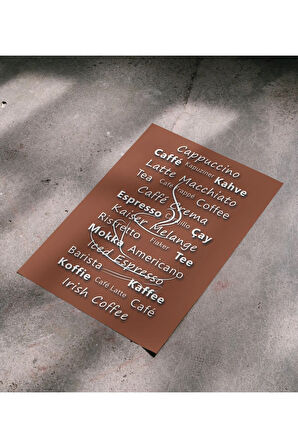 Cappuccino
Caffé Kapuziner Kahve
Latte Macchiato
Tea Café frappé Coffee
Caffè Crema
Espresso Çay
Kaiser Melange
Ristretto Fiaker Tee
Mokka Americano
Iced Espresso
Barista Kaffee
Koffie Café Latte Café
Irish Coffee